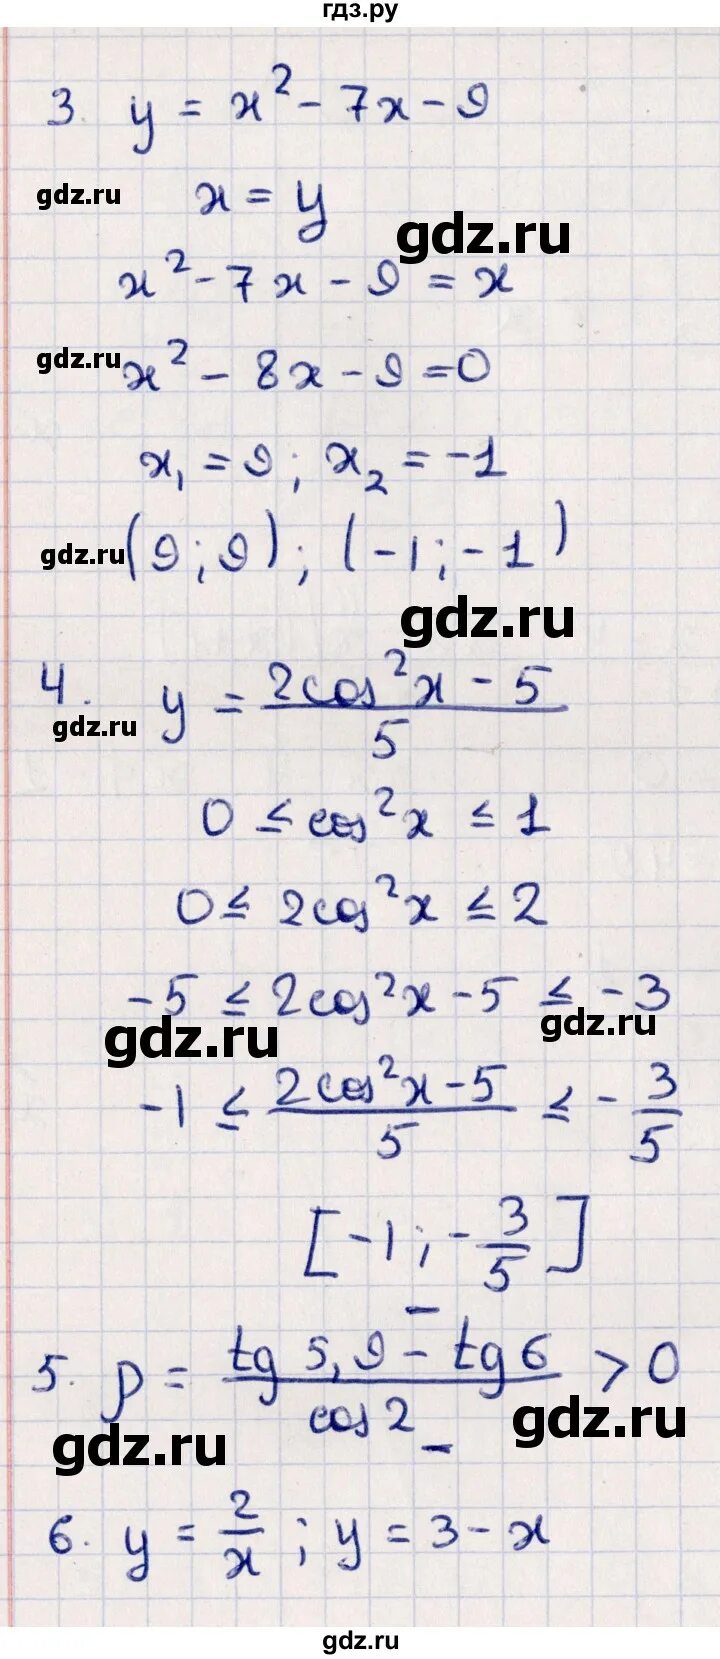 гдз.ру
3. y = x² - 7x - 9
gdz.ru
x = y
gdz.ru
x² - 7x - 9 = x
gdz.ru
x² - 8x - 9 = 0
x₁ = 9; x₂ = -1
gdz.ru
(9; 9); (-1; -1)
gdz.ru
4. y = (2cos²x - 5)/5
gdz.ru
0 ≤ cos²x ≤ 1
0 ≤ 2cos²x ≤ 2
-5 ≤ 2cos²x - 5 ≤ -3
gdz.ru
gdz.ru
-1 ≤ (2cos²x - 5)/5 ≤ -3/5
[-1; -3/5]
5. p = (tg 5,9 - tg 6)/cos 2 > 0
gdz.ru
gdz.ru
6. y = 2/x; y = 3 - x
gdz.ru